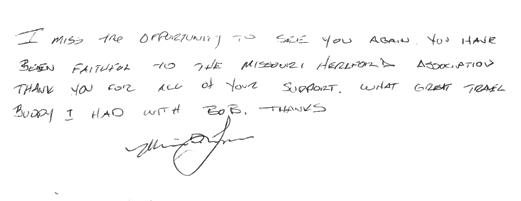 I MISS THE OPPORTUNITY TO SEE YOU AGAIN. YOU HAVE
BEEN FAITHFUL TO THE MISSOURI HEREFORD ASSOCIATION
THANK YOU FOR ALL OF YOUR SUPPORT. WHAT GREAT TRAVEL
BUDDY I HAD WITH BOB. THANKS